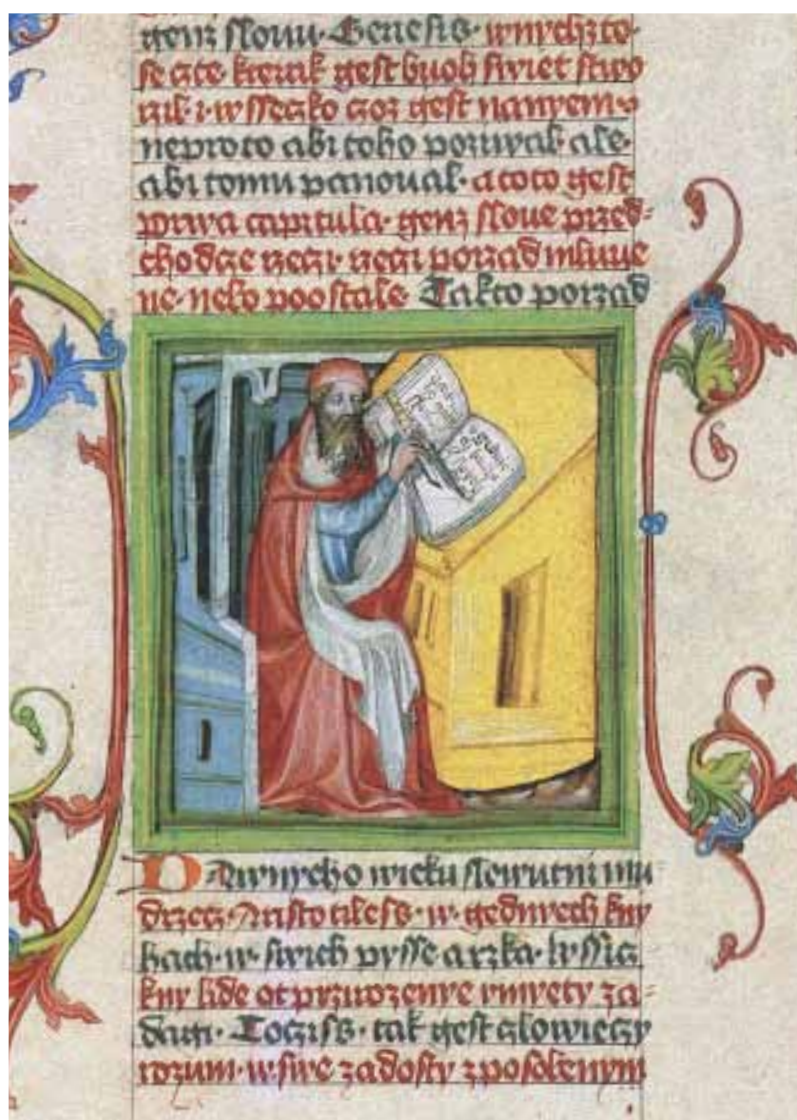 genz slovu · Genesis · wnychzto ·
se cte kterak gest buoh swiet stwo
rzil · i · wssecko coz gest nanyem ·
neproto abi toho pozywal ale ·
abi tomu panoval · a toto gest
prwa capitula · genz slove przed=
chodcze rzeczi · rzeczi porzad mluve
ne · nebo poostale · Takto porzad
Dawnyeho wieku slowutni mu
drzecz · Aristotiles · w · gednyech kny
hach · w · swich pysse a rzka · wssicz
kny lide ot przyrozenye umyety za=
dagi · Tocziss · tak gest czlowieczy
rozum · w swe zadosty zposobenym